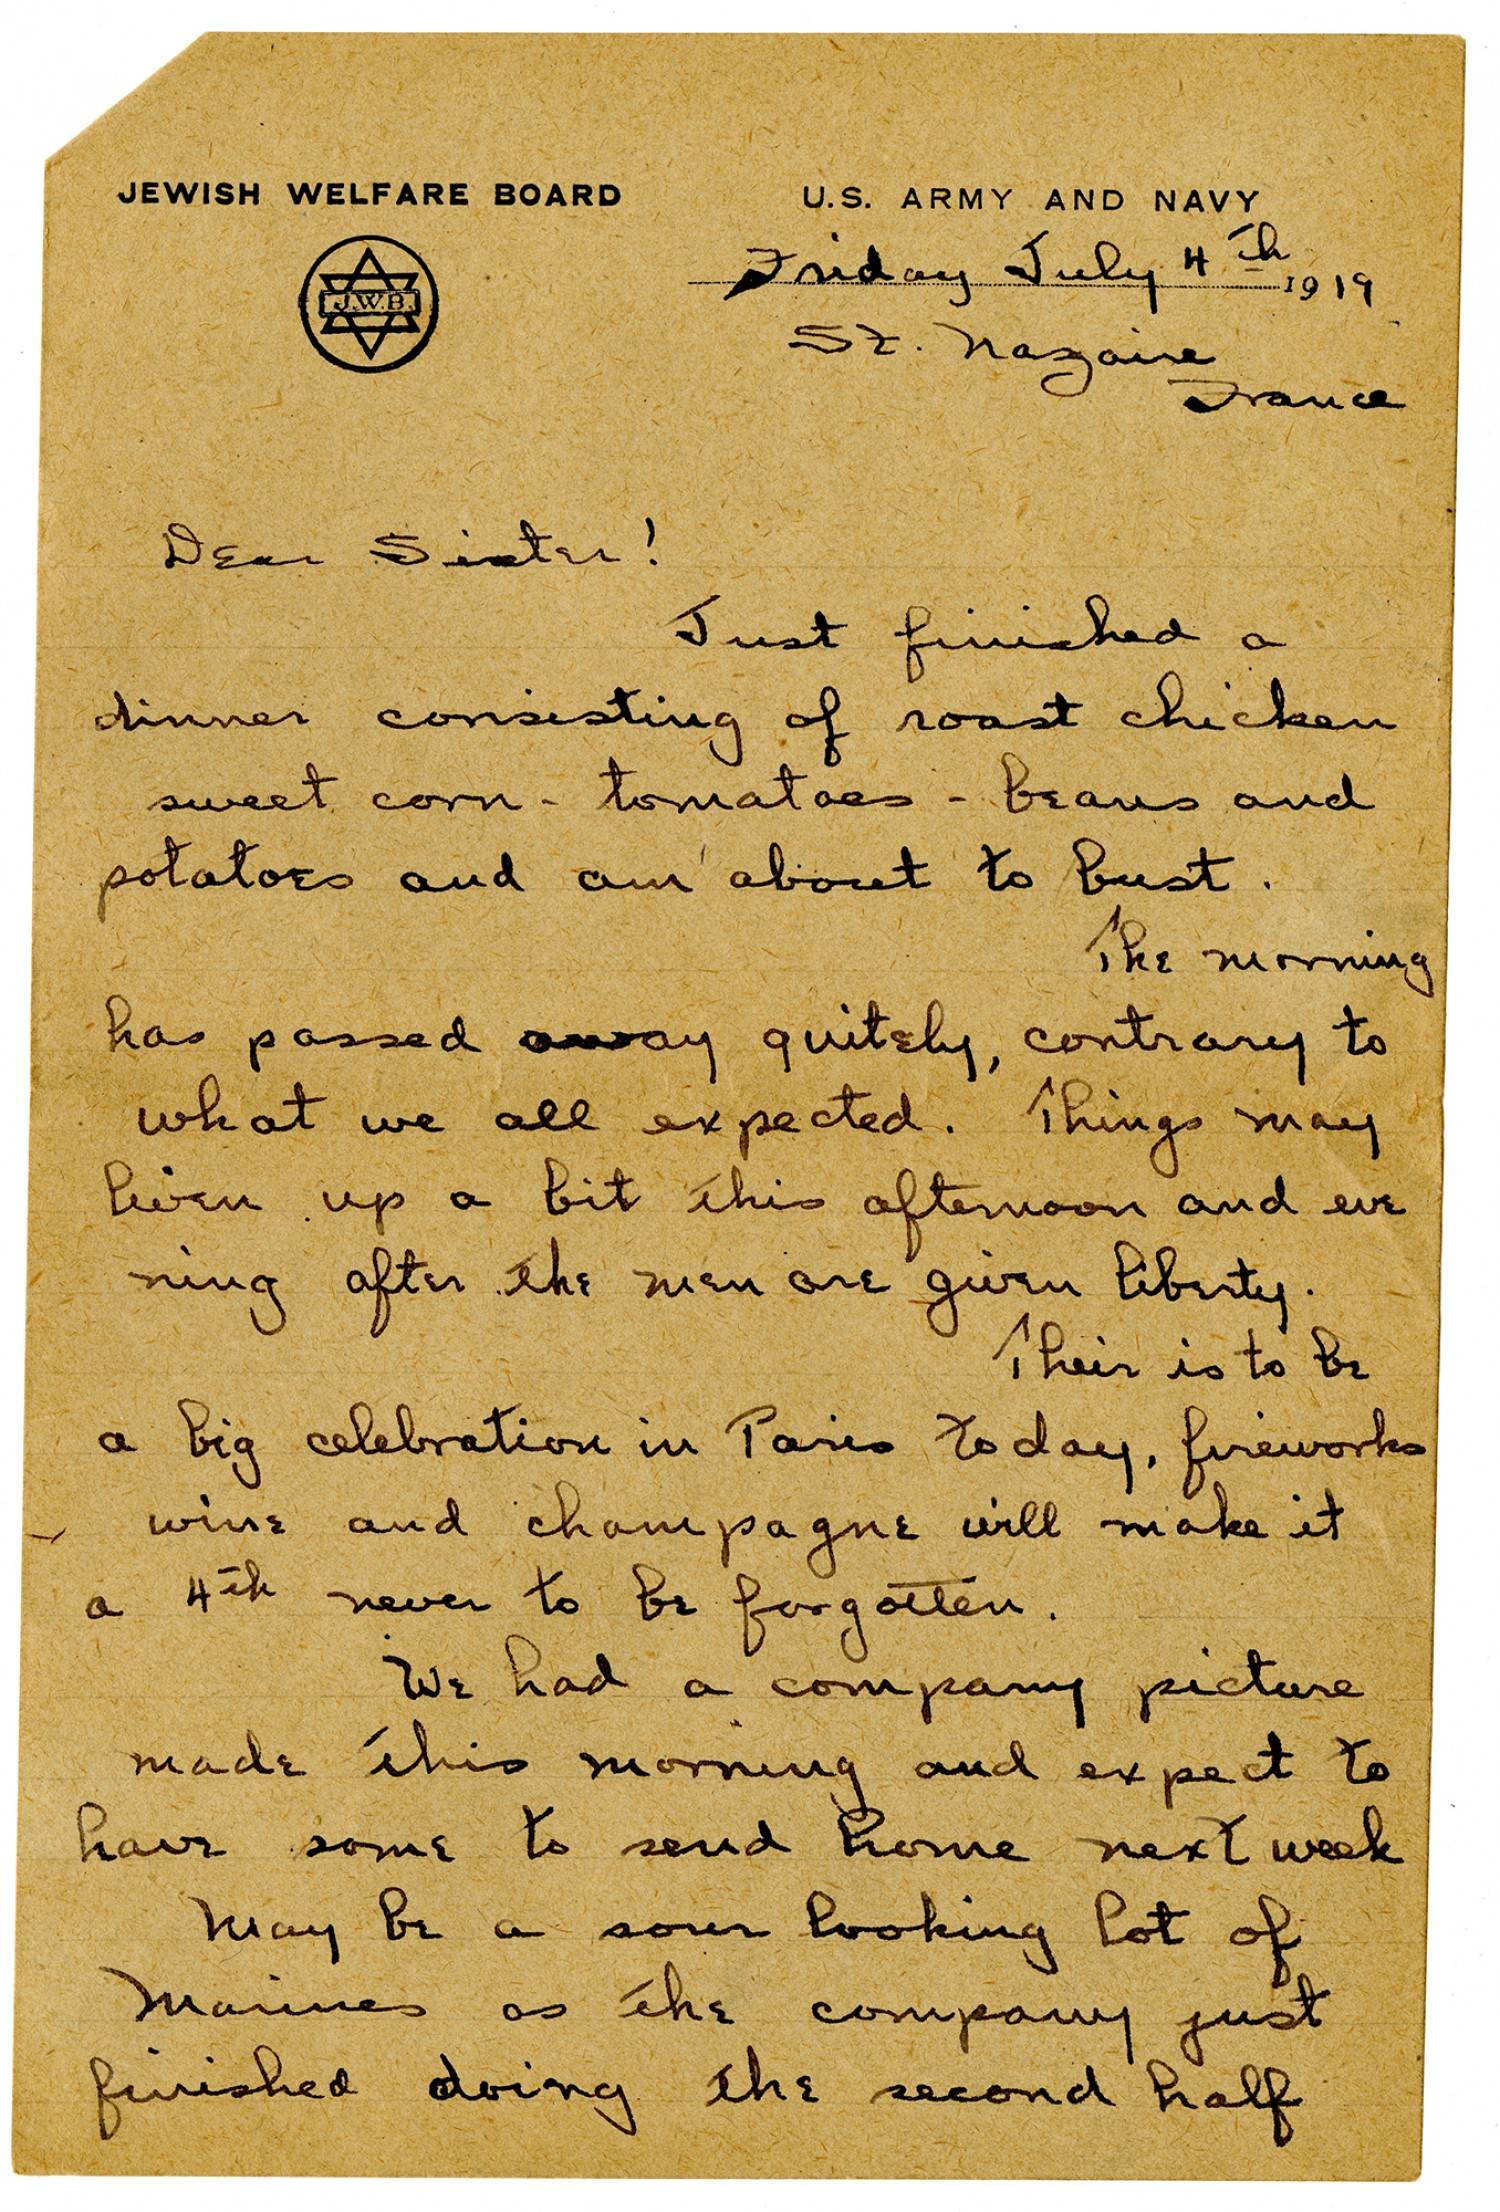 JEWISH WELFARE BOARD
U.S. ARMY AND NAVY
J.W.B.
Friday July 4th 1919
St. Nazaire
France
Dear Sister!
Just finished a
dinner consisting of roast chicken
sweet corn - tomatoes - beans and
potatoes and am about to bust.
The morning
has passed away quitely, contrary to
what we all expected. Things may
liven up a bit this afternoon and eve
ning after the men are given liberty.
Their is to be
a big celebration in Paris today, fireworks
wine and champagne will make it
a 4th never to be forgotten.
We had a company picture
made this morning and expect to
have some to send home next week
May be a sour looking lot of
Marines as the company just
finished doing the second half